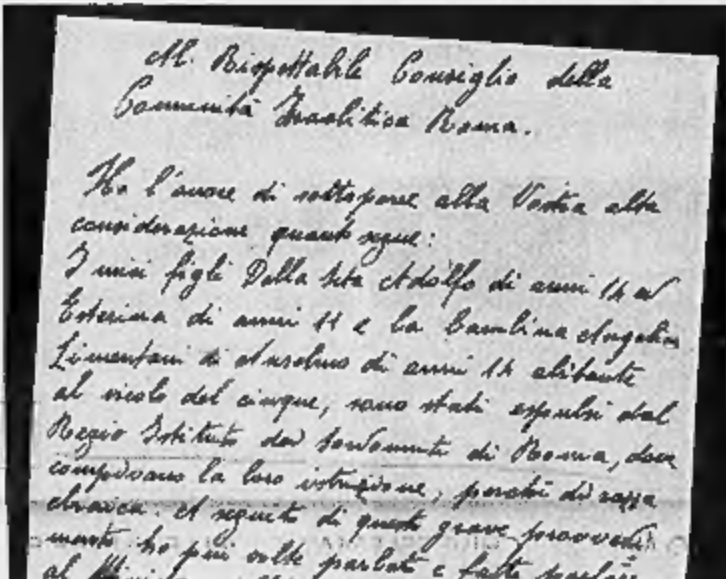 Al. Rispettabile Consiglio della
Comunità Israelitica Roma.
Ho l'onore di sottoporre alla Vostra alta
considerazione quanto segue:
I miei figli Della Seta Adolfo di anni 14 ed
Esterina di anni 11 e la bambina Angelica
Limentani di Anselmo di anni 14 abitante
al vicolo del cinque, sono stati espulsi dal
Regio Istituto dei Sordomuti di Roma, dove
compivano la loro istruzione, perchè di razza
ebraica. A seguito di questo grave provvedi
mento ho più volte parlato e fatto
al